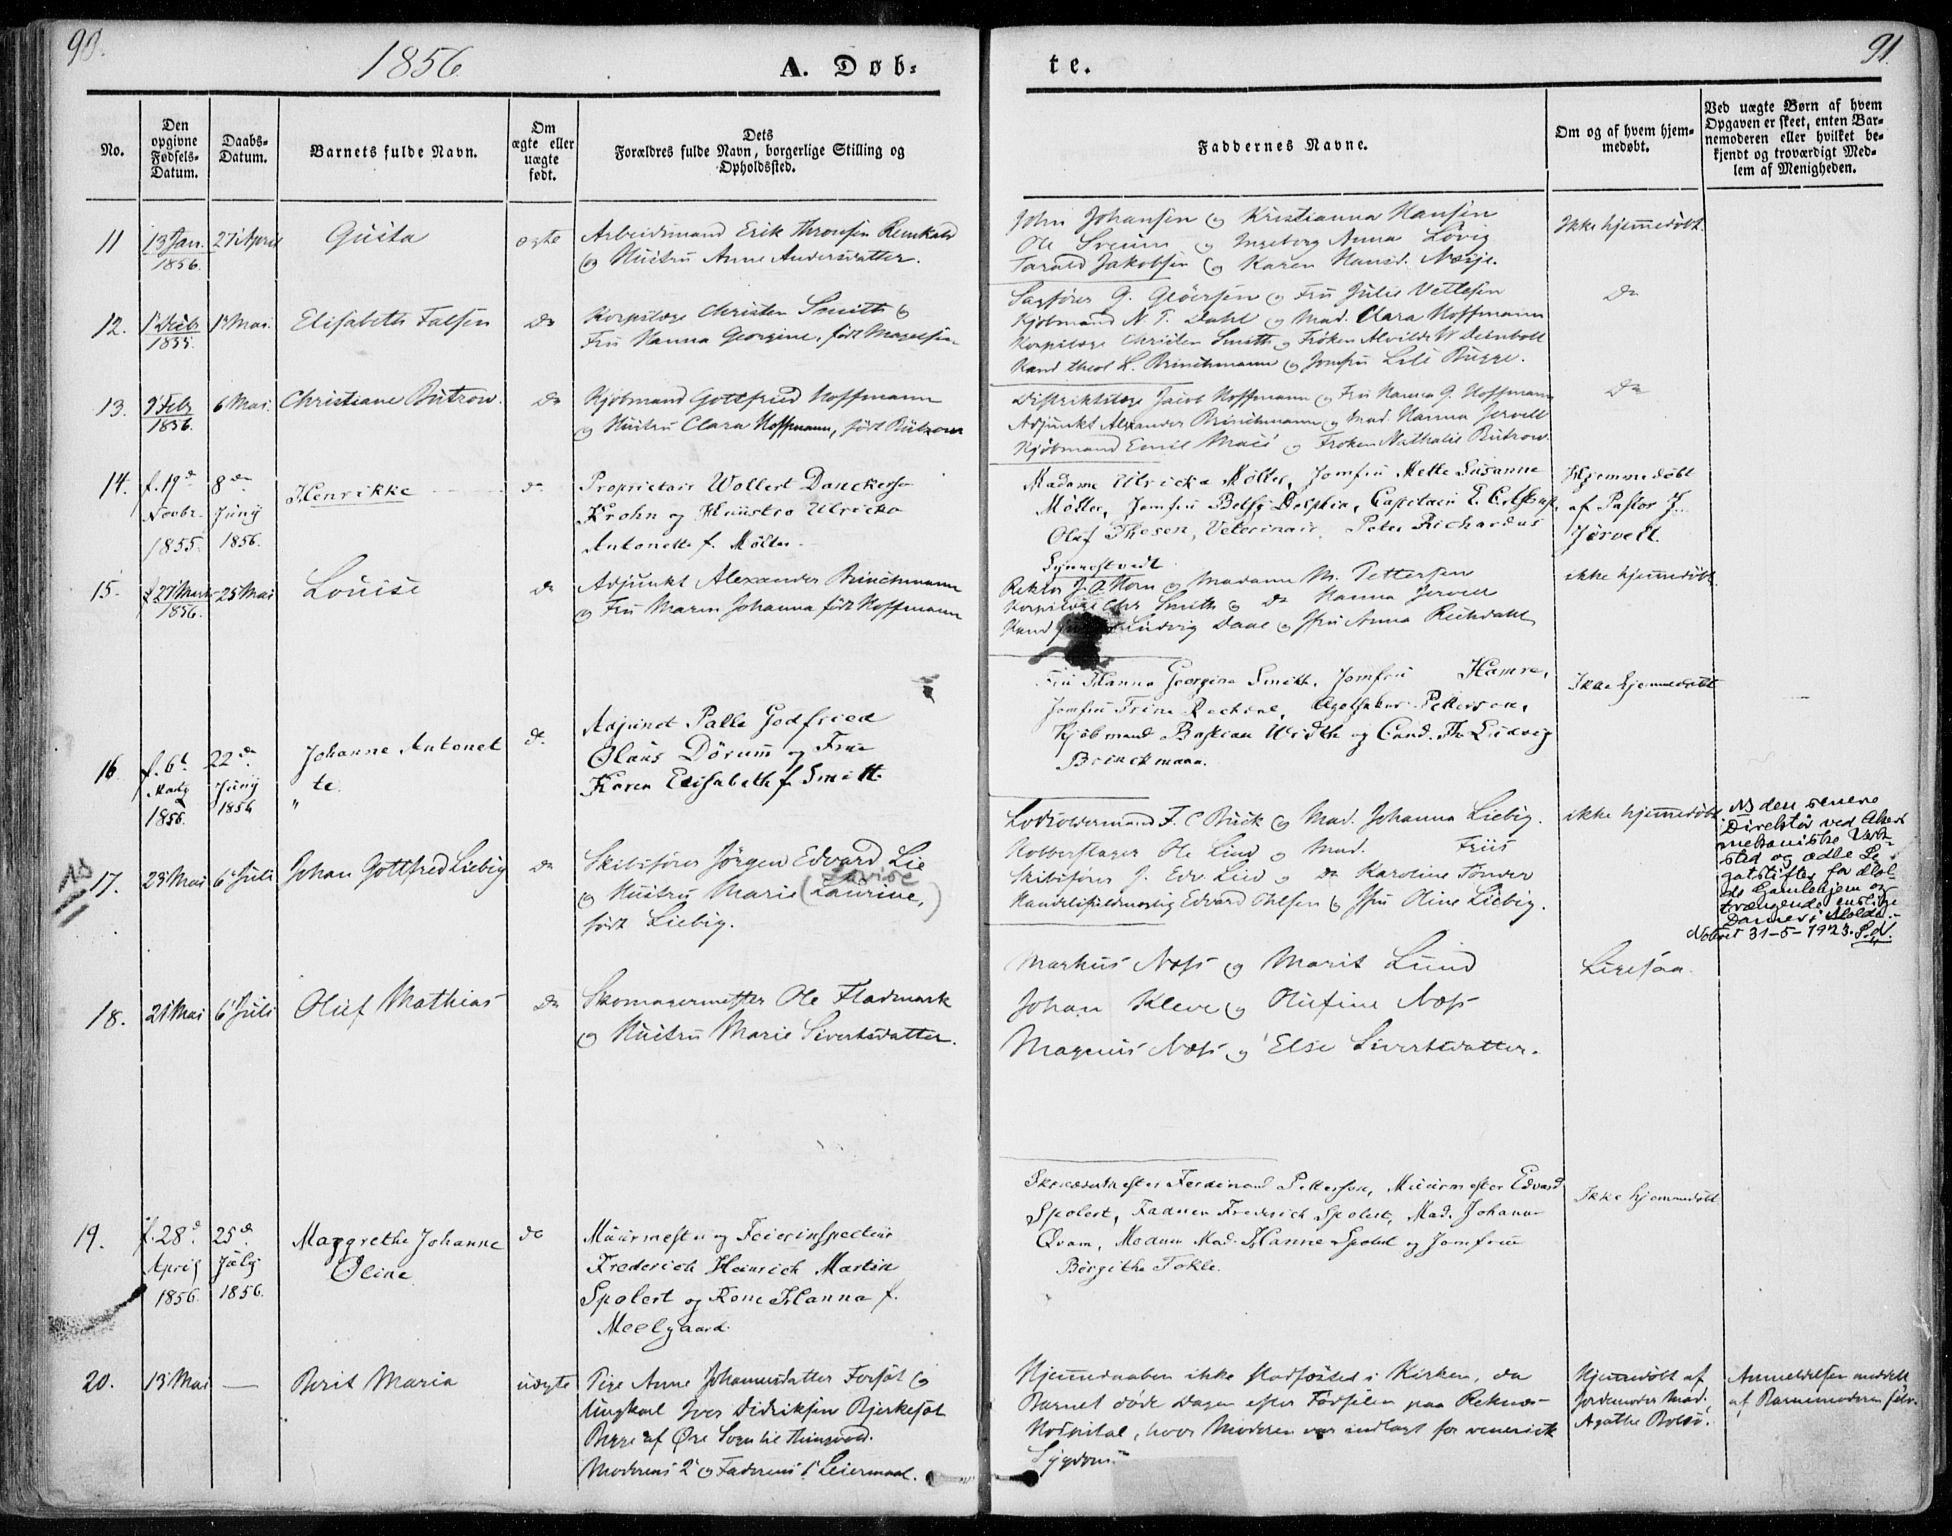 90.
1856
A. Døb-
te.
91.
No.
Den
opgivne
Fødsels-
Datum.
Daabs-
Datum.
Barnets fulde Navn.
Om
ægte eller
uægte
født.
Dets
Forældres fulde Navn, borgerlige Stilling og
Opholdssted.
Faddernes Navne.
Om og af hvem hjem-
medøbt.
Ved uægte Børn af hvem
Opgaven er skeet, enten Bar-
nemoderen eller hvilket be-
kjendt og troværdigt Med-
lem af Menigheden.
11
13 Jan.
1856.
27 April
Gusta
ægte
Arbeidsmand Erik Thronsen
og Hustru Anne Andersdatter.
John Johansen og Kristianna Hansen
Ole Sveum og Ingeborg Anna Lövig
Tarald Jakobsen og Karen Hansd.
Ikke hjemmedöbt.
12.
1 Decb
1855.
1 Mai.
Elisabeth Falsen
Do
Korpslæge Christen Smith og
Fru Hanna Georgine, født Magelsen
Sagfører G. Gløersen og Fru Julie Vettesen
Kjöbmand N. T. Dahl og Mad. Clara Hoffmann
Korpslæge Christen Smith og Frøken Alvilde W Deinboll
Kand theol L. Brinchmann og Jomfru Lili Bugge.
Do
13.
9 Febr
1856.
6 Mai.
Christiane Bütrow.
Do
Kjöbmand Gottfried Hoffmann
og Hustru Clara Hoffmann, født Bütrow
Distriktslæge Jacob Hoffmann og Fru Hanna G. Hoffmann
Adjunkt Alexander Brinchmann og Mad. Hanna Jervell
Kjöbmand Emil og Frøken Nathalie Bütrow.
Do
14.
f. 19d
Novbr.
1855.
8de
Juny
1856.
Henrikke
do
Proprietair Wollert Danckertsen
Krohn og Huustro Ulricka
Antonette f. Möller.
Madame Ulricka Möller, Jomfru Mette Susanne
Möller, Jomfru Betsy Dolphin, Capitain E.
Olaf Thesen, Veterinair, Peter Richardus
Synnestvedt
Hjemmedöbt
af Pastor J.
Jervell.
15.
f 27 Marts
1856.
25 Mai
Louise
do
Adjunkt Alexander Brinchmann
og Fru Maren Johanna født Hoffmann
Rektor J. A Horn og Madame M. Pettersen
Korpslæge Chr Smith og Do Hanna Jervell
Kand Ludvig Daae og Jfru Anna
ikke hjemmedöbt
16.
f. 6t
1856.
22de
Juny
1856
Johanne Antonet
te.
"
do
Adjunct Palle Godfried
Olaus Dörum og Frue
Karen Elisabeth f. Smith.
Fru Hanna Georgine Smith, Jomfru Hansen,
Jomfru Trine Apotheker Petterson,
Kjöbmand Bastian og Cand. Th Ludvig
Brinckmann.
Ikke hjemmedöbt
NB
17.
23 Mai
6 Juli
Johan Gottfred Liebig
do
Skibsfører Jörgen Edvard Lie
Lovise
og Hustru Marie (Laurine,)
født Liebig.
Lodsoldermand F. C Buck og Mad. Johanna Liebig.
Kobberslager Ole Lind og Mad. Friis
Skibsfører J. Edv. Lind og Do Karoline Tønder
Handelsfuldmægtig Edvard Ohlsen og Jfru Oline Liebig.
ikke hjemmedöbt
NB den senere
Direktør ved Akers
mekaniske Verk-
sted og ædle Le-
gatstifter for Mol-
de Gamlehjem og
trængende enslige
Damer i Molde.
Noteret 31-5-1923. S.N.
18.
21 Mai
6 Juli
Oluf Mathias
Do
Skomagermester Ole Fladmark
og Hustru Marie Sivertsdatter.
Markus Næss og Marit Lund
Johan Kleve og Olufine Næss
Magnus Næss og Else Sivertsdatter.
Ligesaa.
19.
f. 28d
April
1856.
25de
July
1856.
Margrethe Johanne
Oline
do
Muurmester og Feierinspecteur
Frederich Heinrich Martin
Spolert og Kone Hanna f.
Meelgaard.
Ferdinand Pettersen, Muurmester Edvard
Spolert, Faderen Frederich Spolert, Mad. Johanne
Qvam, Moderen Mad. Hanne Spolert og Jomfru
Birgithe Tokle.
Ikke hjemmedöbt
20.
13 Mai
—
Berit Maria
uægte
Pige Anne Johannesdatter og
Ungkarl Iver Didriksen Bjerkesæt
Begge af Øre Sogn til Thingvold.
Moderens 2 og Faderens 1 Leiermaal.
Hjemmedaaben ikke stadfæsted i Kirken, da
Barnet døde Dagen efter Fødselen paa Reknæs
Hospital, hvor Moderen var indlagt for venerisk
Sygdom.
Hjemmedöbt af
Jordemoder Mad.
Agathe Bolsø.
Anmeldelsen meddelt
af Barnemoderen selv.